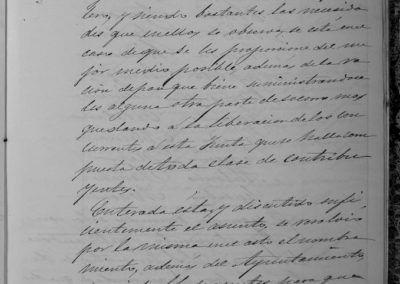 tero, y siendo bastantes las necesida
des que en ellos se observa, se está en el
caso de que se les proporcione del me
jor medio posible además de la ra
ción de pan que viene suministrando
les alguna otra parte de socorro mas
quedando a la liberacion de los con
currentes a esta Junta que se halla com
puesta de toda clase de contribu
yentes.
Enterada ésta, y discutido sufi
cientemente el asunto, se resolvió
por la misma en el acto el nombra
miento, además del Ayuntamiento
para que